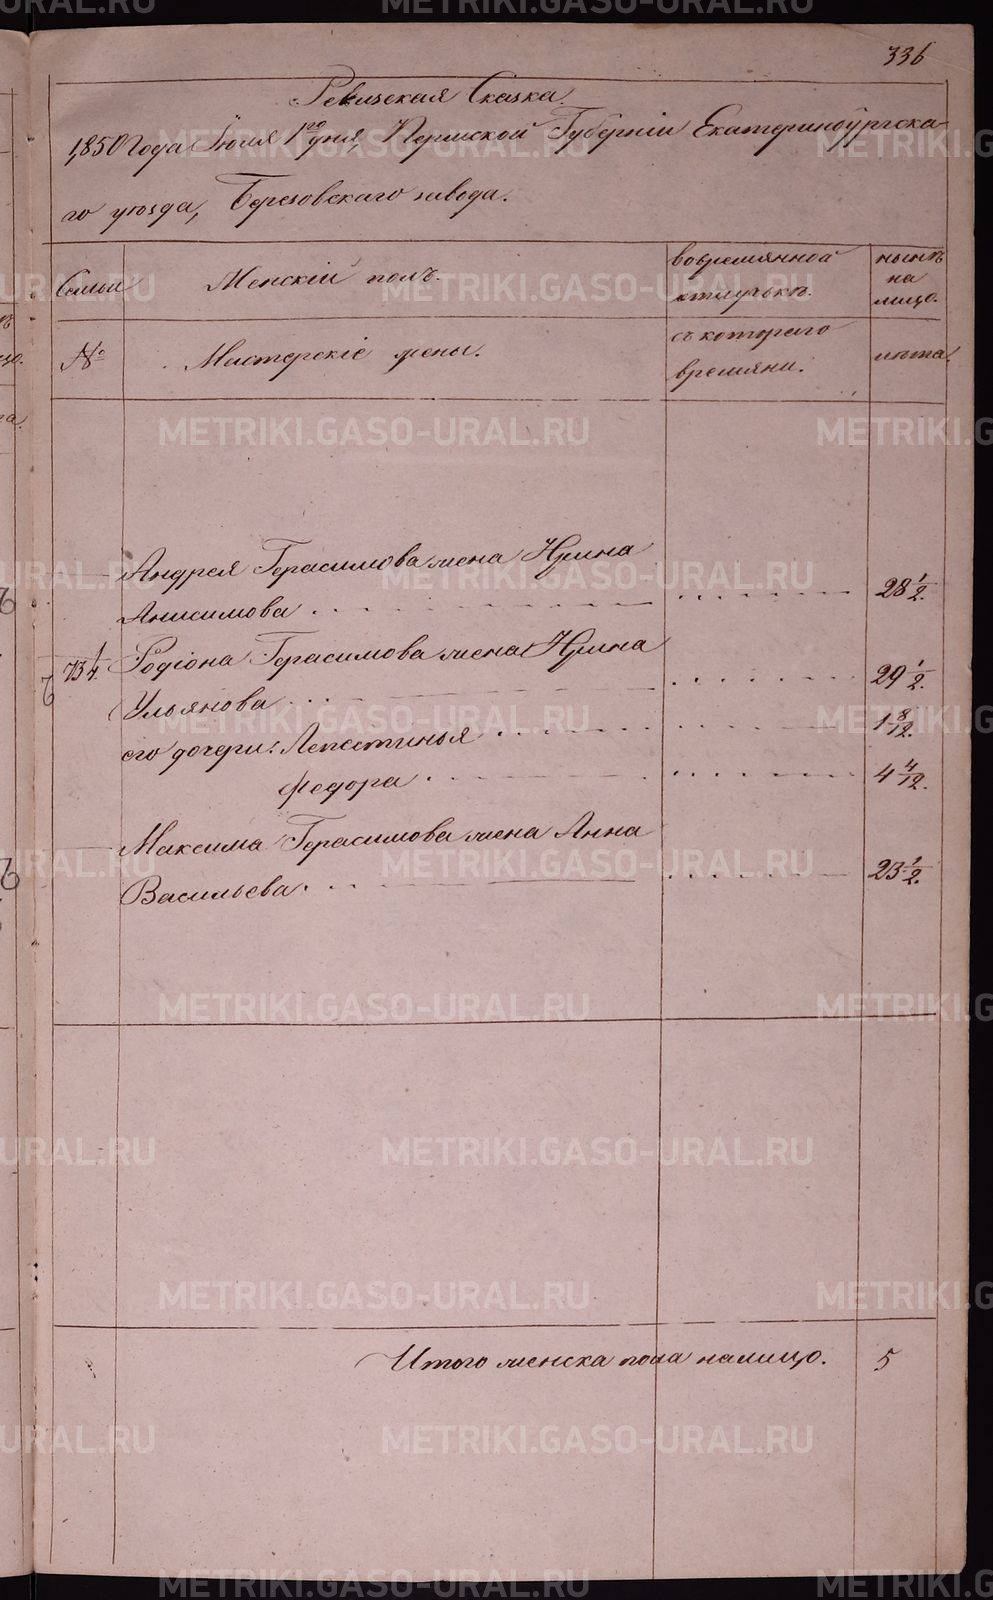 336
Ревизская Сказка.
1850 Года Июля 1го дня, Пермской Губерніи Екатеринбургска-
го уѣзда, Березовскаго завода.
Семьи
Женскій полъ.
вовремянной
отлучькѣ.
нынѣ
на
лицо.
№
Мастерскіе жены.
съ котораго
времяни.
лѣта.
Андрея Герасимова жена Ирина
Анисимова 28 1/2.
73 1/4. Родіона Герасимова жена Ирина
Ульянова 29 1/2.
его дочери: Лепестинья 1 8/12.
Федора 4 4/12.
Максима Герасимова жена Анна
Васильева 23 1/2.
Итого женска пола налицо. 5
METRIKI.GASO-URAL.RU